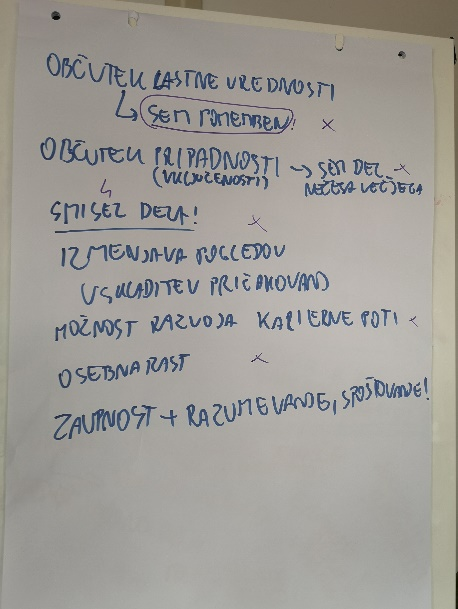 OBČUTEK LASTNE VREDNOSTI
↳ SEM POMEMBEN! x
OBČUTEK PRIPADNOSTI → SEM DEL x
(VKLJUČENOSTI) NEČESA VEČJEGA
↳
SMISEL DELA! x
IZMENJAVA POGLEDOV
USKLADITEV PRIČAKOVANJ
MOŽNOST RAZVOJA KARIERNE POTI x
OSEBNA RAST x
ZAUPNOST + RAZUMEVANJE, SPOŠTOVANJE!